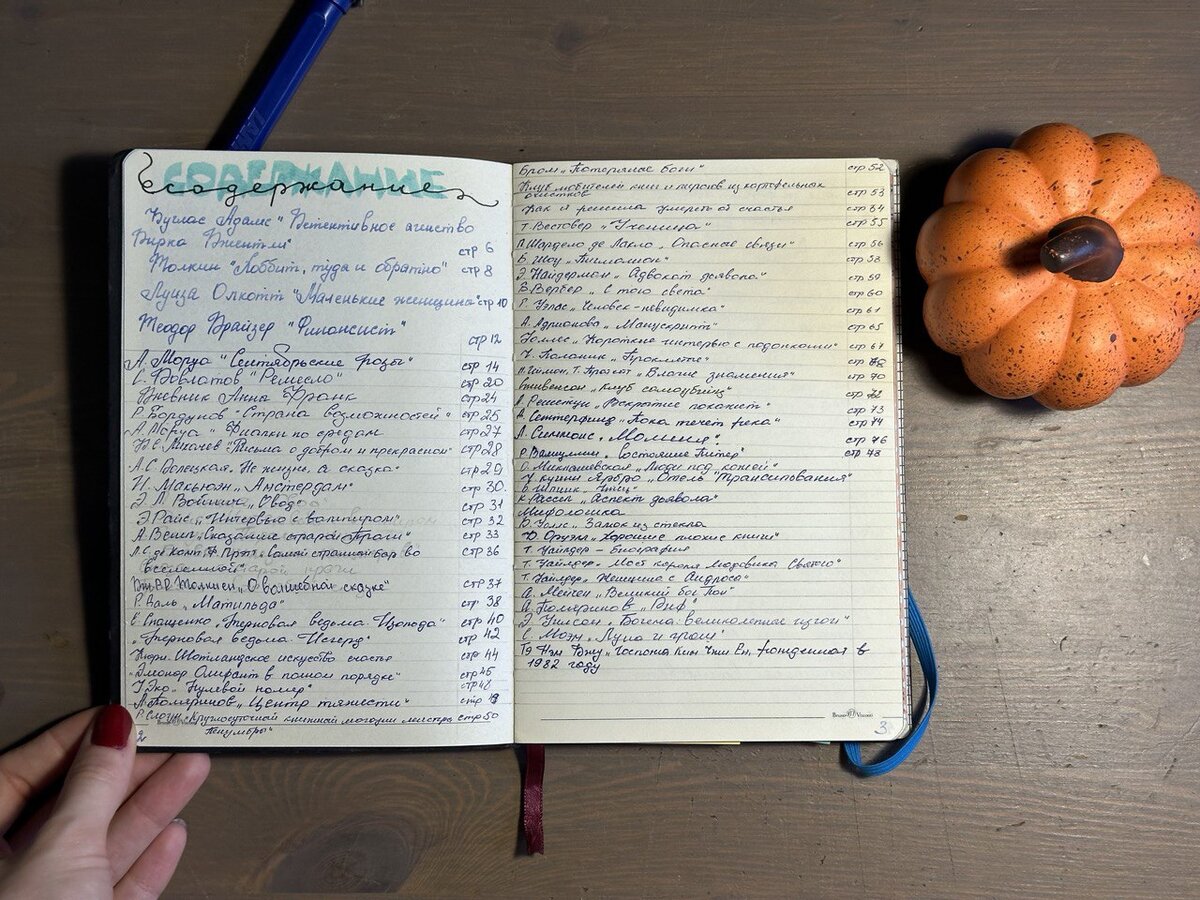 СОДЕРЖАНИЕ
содержание
Дуглас Адамс "Детективное агенство
Дирка Джентли"
стр 6
Толкин "Хоббит, туда и обратно" стр 8
Луиза Олкотт "Маленькие женщины" стр 10
Теодор Драйзер "Финансист"
стр 12
А. Моруа "Сентябрьские розы" стр 14
С. Довлатов "Ремесло" стр 20
Дневник Анна Франк стр 24
"Страна возможностей" стр 25
А. Моруа "Фиалки по средам стр 27
"Письма о добром и прекрасном" стр 28
А.С. Не жизнь, а сказка" стр 29
И. Макьюэн "Амстердам" стр 30.
Э.Л. Войнич "Овод" стр 31
Э. Райс "Интервью с вампиром" стр 32
А. "Сказание старой Праги" стр 33
Л.С. де Камп Ф. Пратт. Самый странный бар во стр 36
вселенной
Дж.Р.Р. Толкиен "О волшебной сказке" стр 37
Р. Даль "Матильда" стр 38
Е. Спащенко "Терновая ведьма. Изольда" стр 40
"Терновая ведьма. Исгерд" стр 42
Шотландское искусство счастье стр 44
"Элеонор Олифант в полном порядке" стр 45
У. Эко "Нулевой номер"
А. Поляринов "Центр тяжести"
Р. Слоун "Круглосуточный книжный магазин мистера стр 50
Пенумбры"
2
Бром "Потерянные боги" стр 52
Клуб любителей книг и пирогов из картофельных
очистков стр 53
Как я решила умереть от счастья стр 54
Т. Вестовер "Ученица" стр 55
П. Шодерло де Лакло "Опасные связи" стр 56
Б. Шоу "Пигмалион" стр 58
Э. Найдерман "Адвокат дьявола" стр 59
Б. Вербер "С того света" стр 60
Г. Уэлс "Человек-невидимка" стр 61
А. Адрианова "Манускрипт" стр 65
Уоллес "Короткие интервью с подонками" стр 67
Ч. Паланик "Проклятые" стр
Н. Гейман, Т. Пратчет "Благие знамения" стр 70
Стивенсон "Клуб самоубийц" стр
"Вскрытие покажет" стр 73
Д. Сеттерфилд "Пока течет река" стр 74
Д. Симмонс "Молния" стр 76
"Состояние Питер" стр 78
О. Миклашевская "Люди под кожей"
Ч. Куинн Ярбро "Отель "Трансильвания"
К. Рассел "Аспект дьявола"
Д. Уоллс "Замок из стекла
Д. Оруэлл "Хорошие плохие книги"
Т. Уайлдер - биография
Т. Уайлдер "Мост короля Людовика Святого"
Т. Уайлдер "Женщина с Андроса"
А. Мейчен "Великий бог Пан"
А. Поляринов "Риф"
Э. Уилсон "Богема: великолепные изгои"
С. Моэм "Луна и грош"
Тэ Нам Джу "Госпожа Ким Чжи Ён, рожденная в
1982 году
Bruno Visconti
3